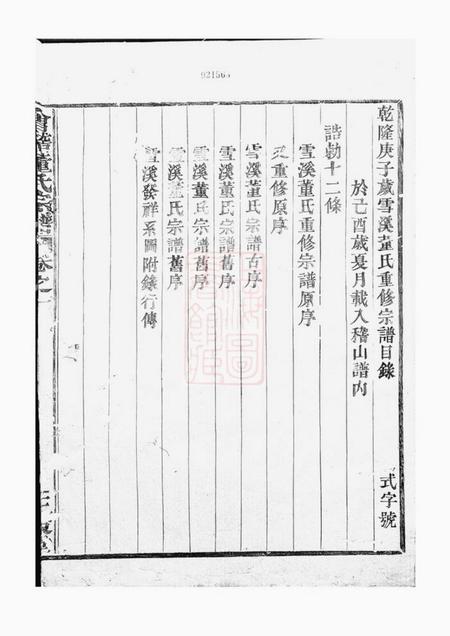 921565
乾隆庚子歲雪溪董氏重修宗譜目錄
於己酉歲夏月載入稽山譜內
式字號
誥勅十二條
雪溪董氏重修宗譜原序
重修原序
雪溪董氏宗譜古序
雪溪董氏宗譜舊序
雪溪董氏宗譜舊序
雪溪董氏宗譜舊序
雪溪發祥系圖附錄行傳
董氏宗譜 卷之一